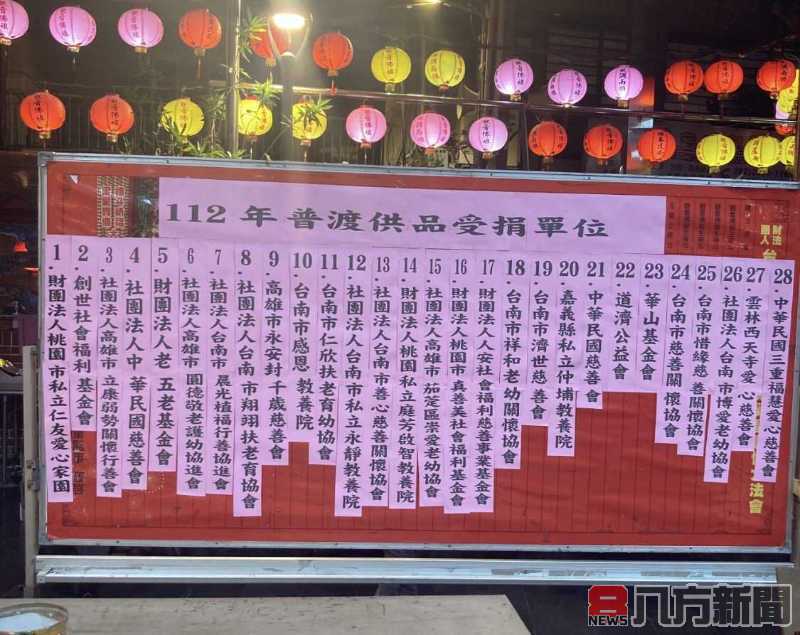 112 年普渡供品受捐單位
1.財團法人桃園市私立仁友愛心家園
2.創世社會福利基金會
3.社團法人高雄市立康弱勢關懷行善會
4.社團法人中華民國慈善會
5.財團法人老五老基金會
6.社團法人高雄市圓德敬老護幼協進會
7.社團法人台南市晨光植福行善協進會
8.社團法人台南市翔翔扶老育幼協會
9.高雄市永安封千歲慈善會
10.台南市感恩教養院
11.台南市仁欣扶老育幼協會
12.社團法人台南市私立永靜教養院
13.社團法人台南市善心慈善關懷協會
14.財團法人桃園市私立庭芳啟智教養院
15.社團法人高雄市茄萣區崇愛老幼協會
16.財團法人桃園市真善美社會福利基金會
17.財團法人人安社會福利慈善事業基金會
18.台南市祥和老幼關懷協會
19.台南市濟世慈善會
20.嘉義縣私立仲埔教養院
21.中華民國慈善會
22.道濟公益會
23.華山基金會
24.台南市慈善關懷協會
25.台南市惜緣慈善關懷協會
26.社團法人台南市博愛老幼協會
27.雲林西天寺愛心慈善會
28.中華民國三重福慧愛心慈善會
財團法人 台
法會
8 NEWS 八方新聞